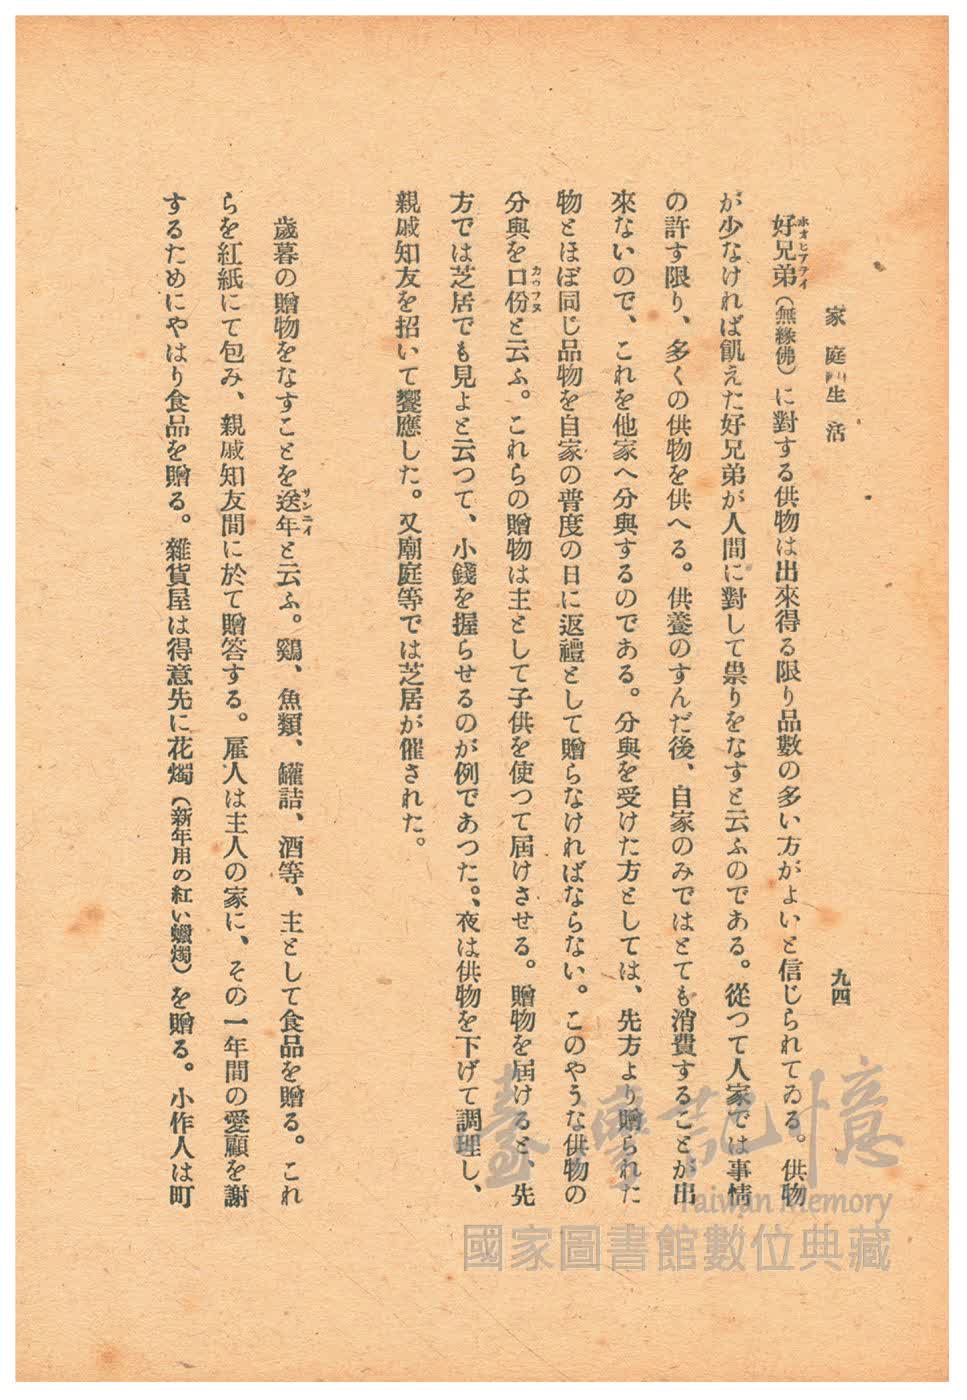 家庭生活
九四
好兄弟(無緣佛)に對する供物は出來得る限り品數の多い方がよいと信じられてゐる。供物
が少なければ飢えた好兄弟が人間に對して祟りをなすと云ふのである。從つて人家では事情
の許す限り、多くの供物を供へる。供養のすんだ後、自家のみではとても消費することが出
來ないので、これを他家へ分與するのである。分與を受けた方としては、先方より贈られた
物とほぼ同じ品物を自家の普度の日に返禮として贈らなければならない。このやうな供物の
分與を口份と云ふ。これらの贈物は主として子供を使つて屆けさせる。贈物を屆けると、先
方では芝居でも見よと云つて、小錢を握らせるのが例であつた。、夜は供物を下げて調理し、
親戚知友を招いて饗應した。又廟庭等では芝居が催された。
歲暮の贈物をなすことを送年と云ふ。鷄、魚類、罐詰、酒等、主として食品を贈る。これ
らを紅紙にて包み、親戚知友間に於て贈答する。雇人は主人の家に、その一年間の愛顧を謝
するためにやはり食品を贈る。雜貨屋は得意先に花燭(新年用の紅い蠟燭)を贈る。小作人は町
ホオヒアテイ
カウフヌ
サンニイ
臺灣記憶
Taiwan Memory
國家圖書館數位典藏